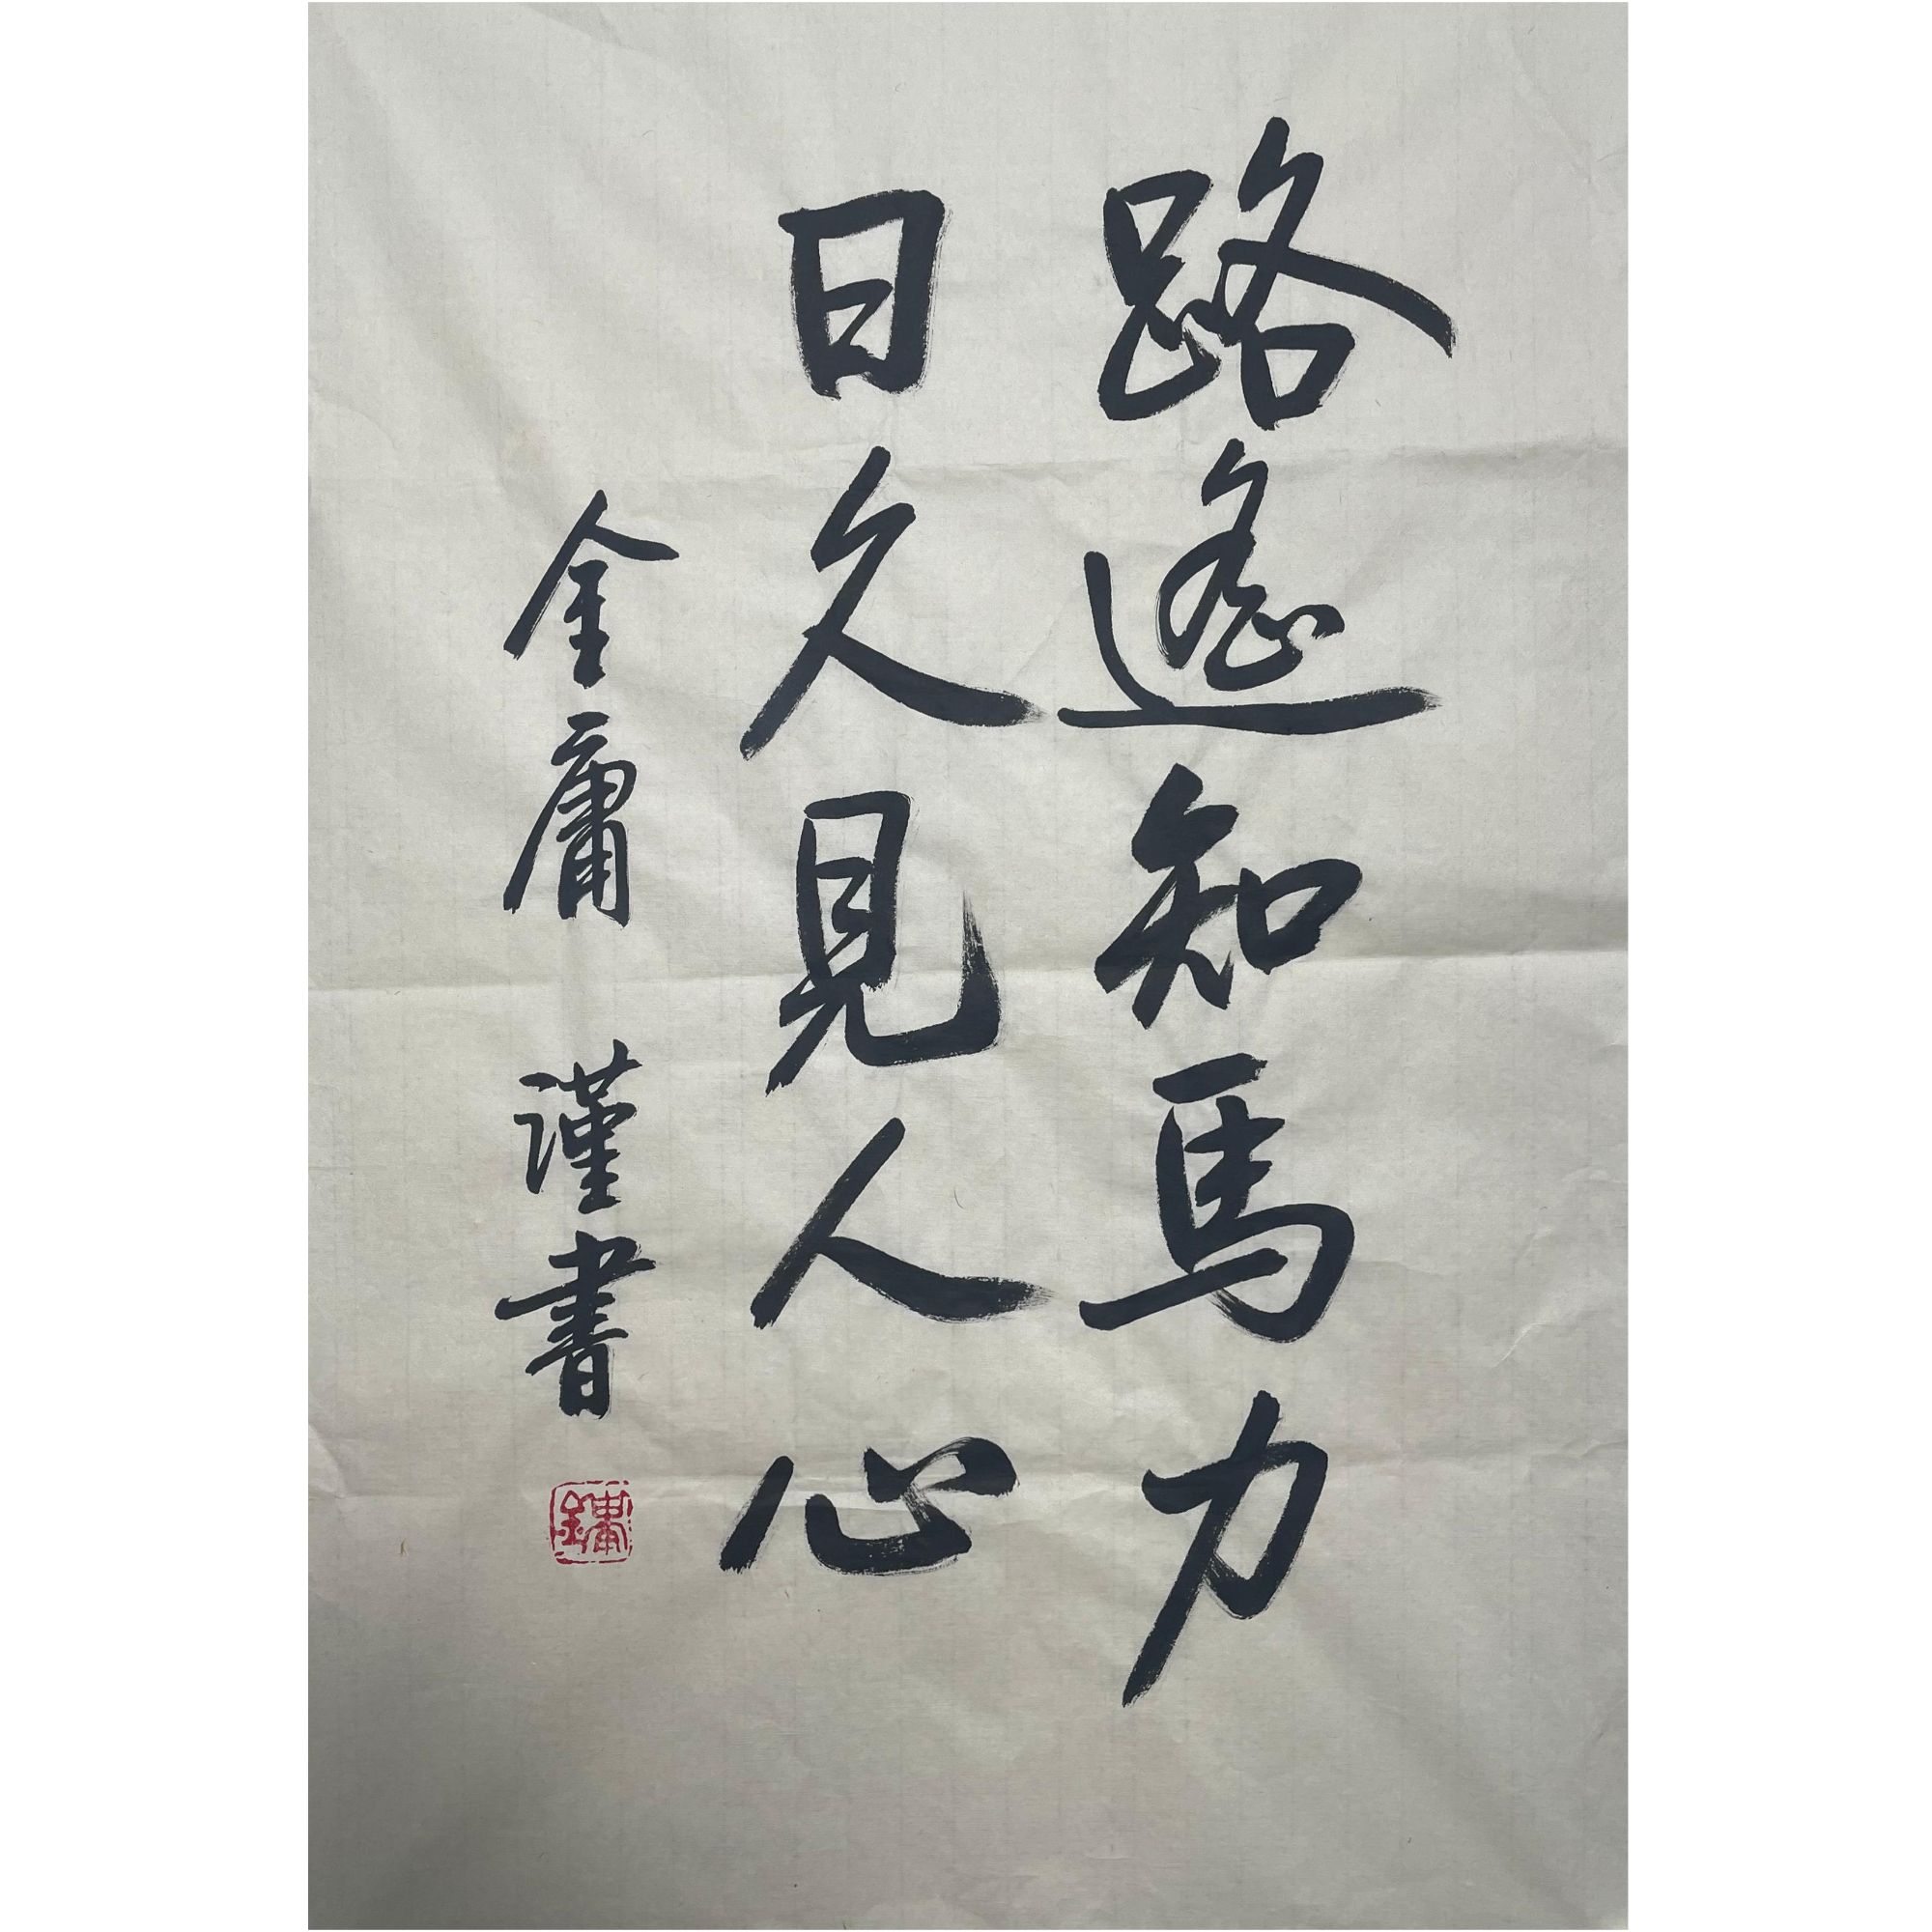 路遙知馬力
日久見人心
金庸 謹書
金庸